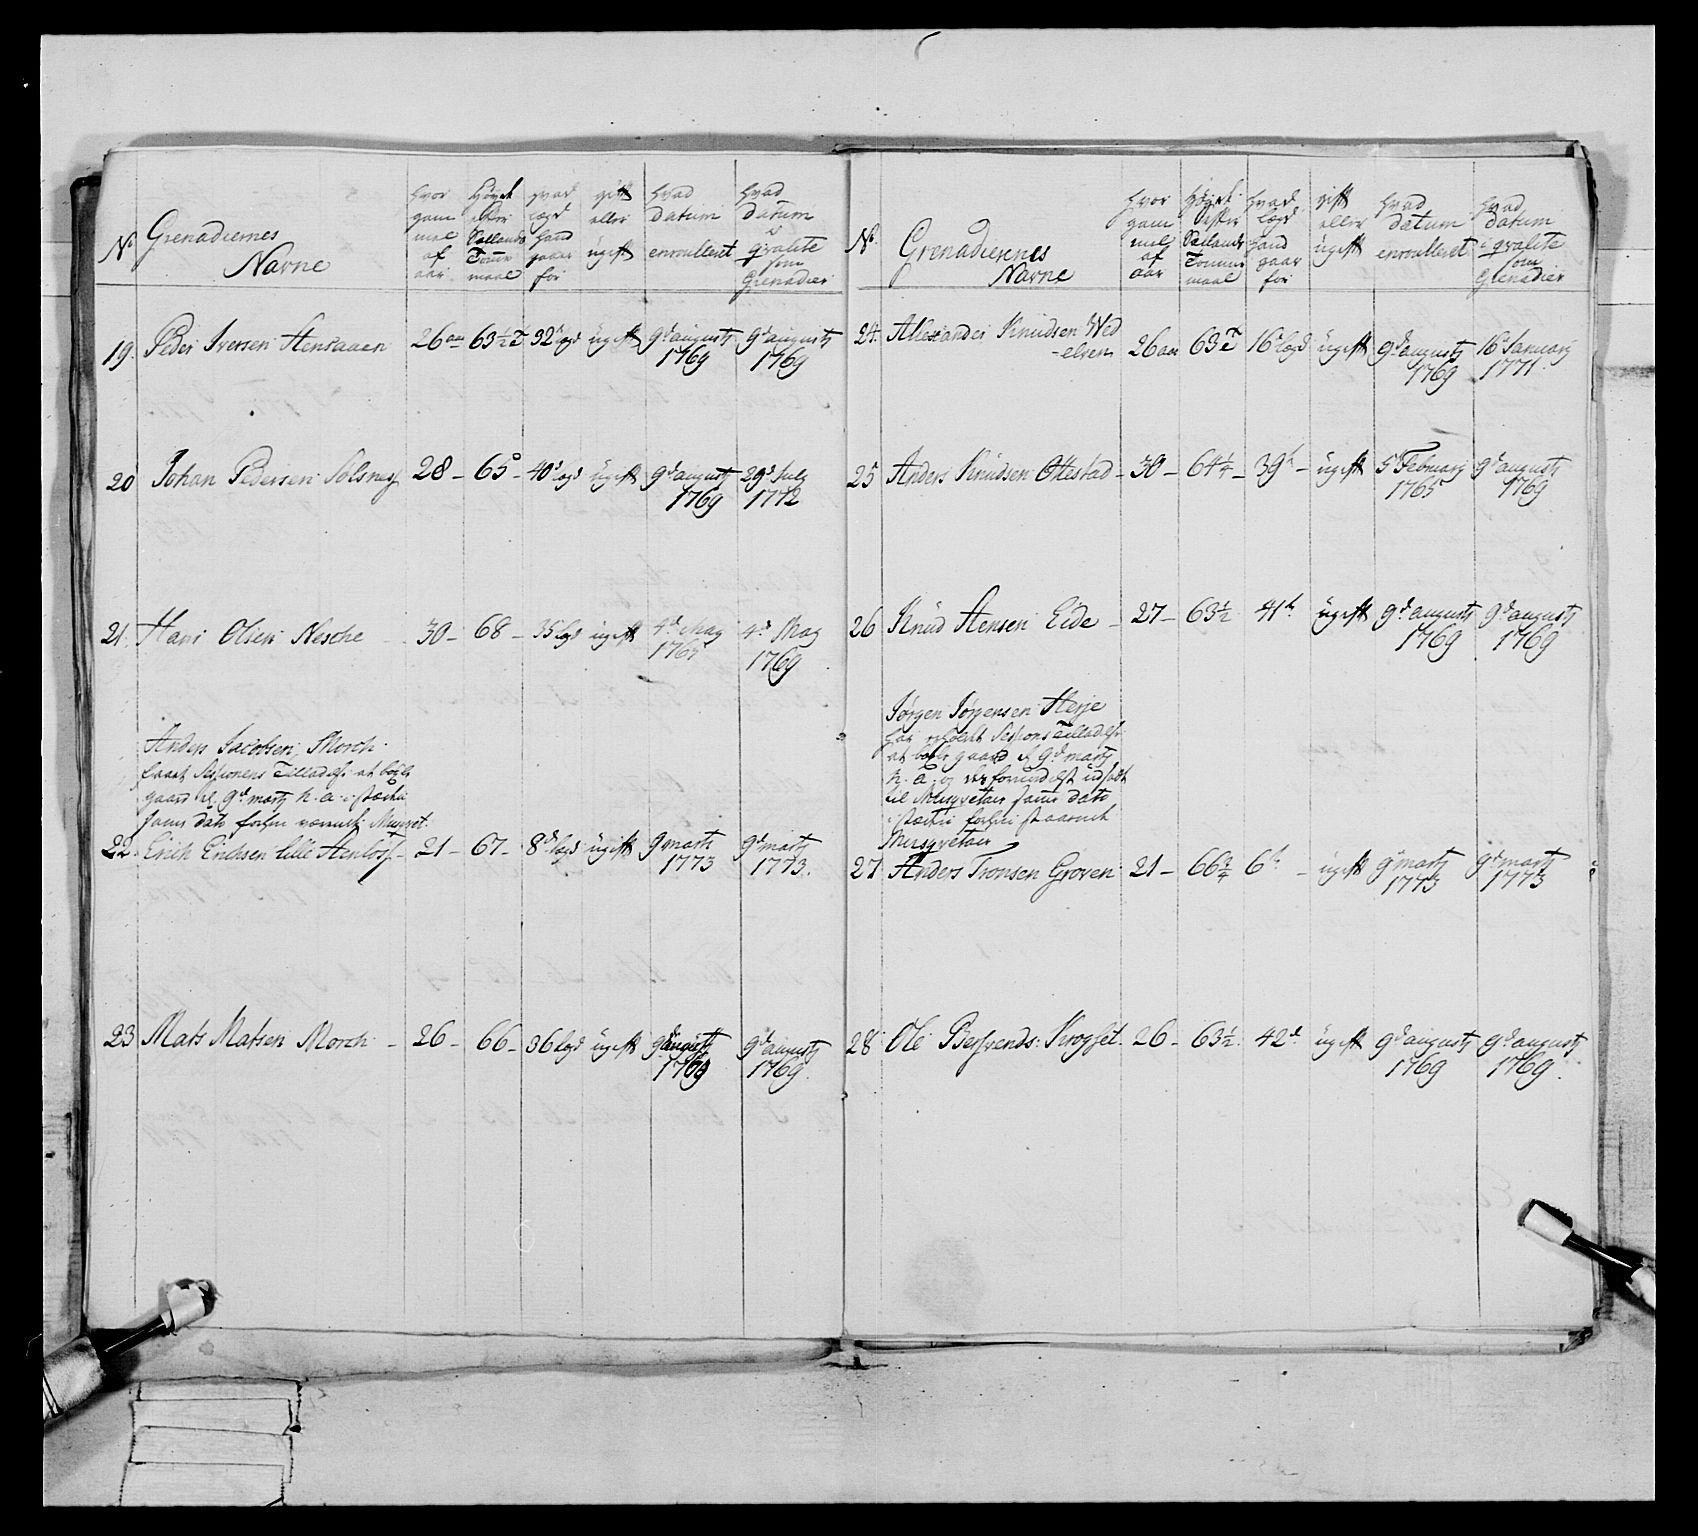 No Grenadiernes Navne
hvor gam mel af aar
Høyde efter Sællands Tomme maal
hvad lægd hand gaar for
gift eller ugift
hvad datum enroulleret
hvad datum i qvalite som Grenadier
19 Peder Iversen Hensaaen 26 aar 63½ T 32 lægd ugift 9d augustj 1769 9d augustj 1769
20 Johan Pedersen Solsnes 28 – 65 – 40d lægd ugift 9d augustj 1769 29d July 1772
21. Hans Olsen Nesche – 30 – 68 – 35 lægd ugift 4d May 4d May 1769
Anders Jacobsen Morch.
faaet Sessionens Tilladelse at
gaard d. 9d martj h. a. i stæden
samme dato forhen Musqvet.
22. Erich Erichsen Lille Henløs – 21 – 67 – 8d lægd ugift 9 martj 1773 9d martj 1773.
23 Mats Matsen Morch – 26 – 66 – 36 lægd ugift 9d augustj 1769 9d augustj 1769.
No Grenadiernes Navne
hvor gam mel af aar
Høyde efter Sællands Tomme maal
hvad lægd hand gaar for
gift eller ugift
hvad datum enroulleret
hvad datum i qvalite som Grenadier
24. Alexander Knudsen Wed
-elven 26 aar 63 T 16 lægd ugift 9d augustj 1769 16d Januarj 1771.
25 Anders Knudsen Ottestad – 30 – 64¼ – 39 – ugift 5d Februarj 1765 9d augustj 1769
26 Knud Hensen Eide – 27 – 63½ 41 ugift 9d augustj 1769 9d augustj 1769
Jørgen Jørgensen Herje
har erholdt Sessions Tilladelse
at gaard d. 9d martj
h. a. og udsadt
til Musqvetair samme dato
i stæden forhen
Musqvetair
27 Anders Tronsen Groven 21 – 66¾ 6 – ugift 9d martj 1773 9d martj 1773
28 Ole Krogset. 26 – 63½. 42d. ugift 9d augustj 1769 9d augustj 1769.